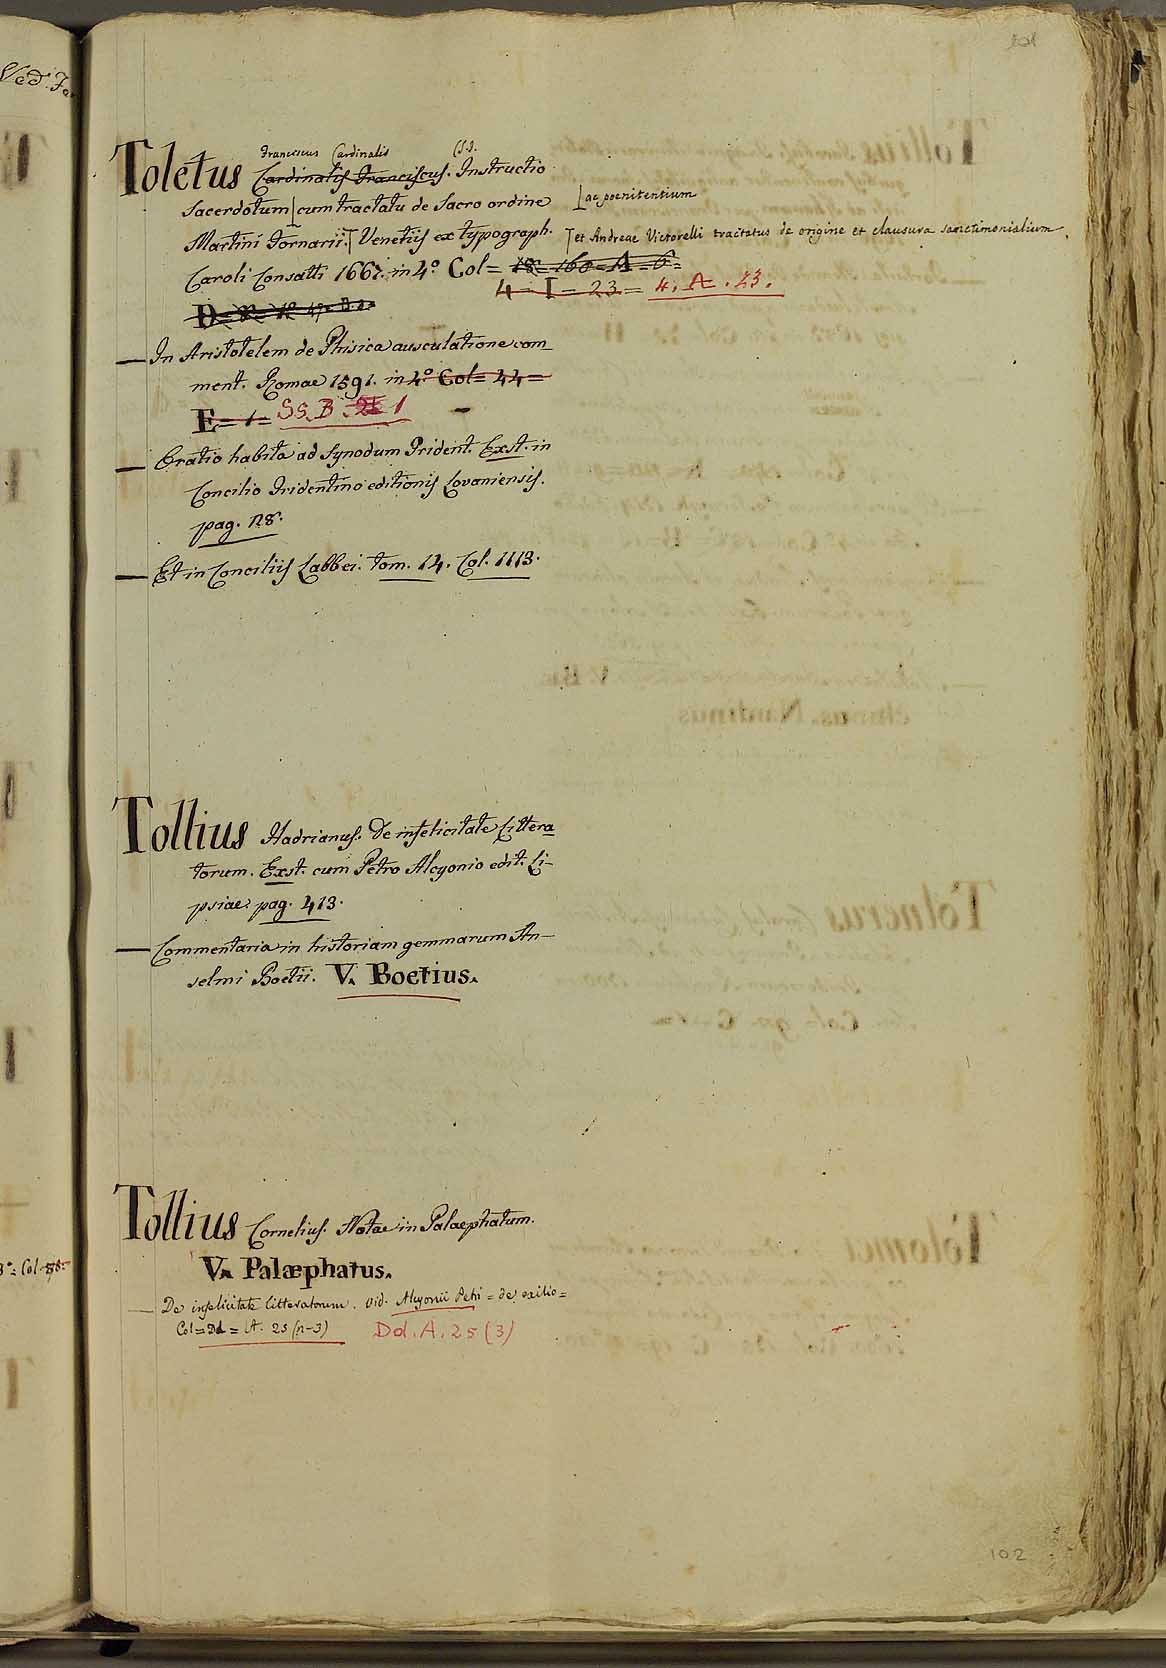 Ved. Fa
101
Franciscus Cardinalis S.J.
Toletus Cardinalis Franciscus. Instructio
Sacerdotum cum tractatu de Sacro ordine
ac poenitentium
Martini Fornarii. Venetiis ex typograph.
et Andreae Victorelli tractatus de origine et clausura sanctimonialium.
Caroli Consatti 1667. in 4º Col= 18= 160= A= 6=
4= I= 23= 4. A. 23.
— In Aristotelem de Phisica ausculatione com
ment. Romae 1591. in 4º Col= 44=
E= 1= Ss. B. 1
— Oratio habita ad Synodum Trident. Exst. in
Concilio Tridentino editionis Lovaniensis.
pag. 128.
— Et in Conciliis Labbei. tom. 14. Col. 1113.
Tollius Hadrianus. De infelicitate Littera
torum. Exst. cum Petro Alcyonio edit. Li-
psiae. pag. 413.
— Commentaria in historiam gemmarum An-
selmi Boetii. V. Boetius.
Tollius Cornelius. Notae in Palaephatum.
V. Palæphatus.
— De infelicitate litteratorum. vid. Alcyonii Petri = de exilio=
Col= Dd= A. 25 (n-3) Dd. A. 25 (3)
102